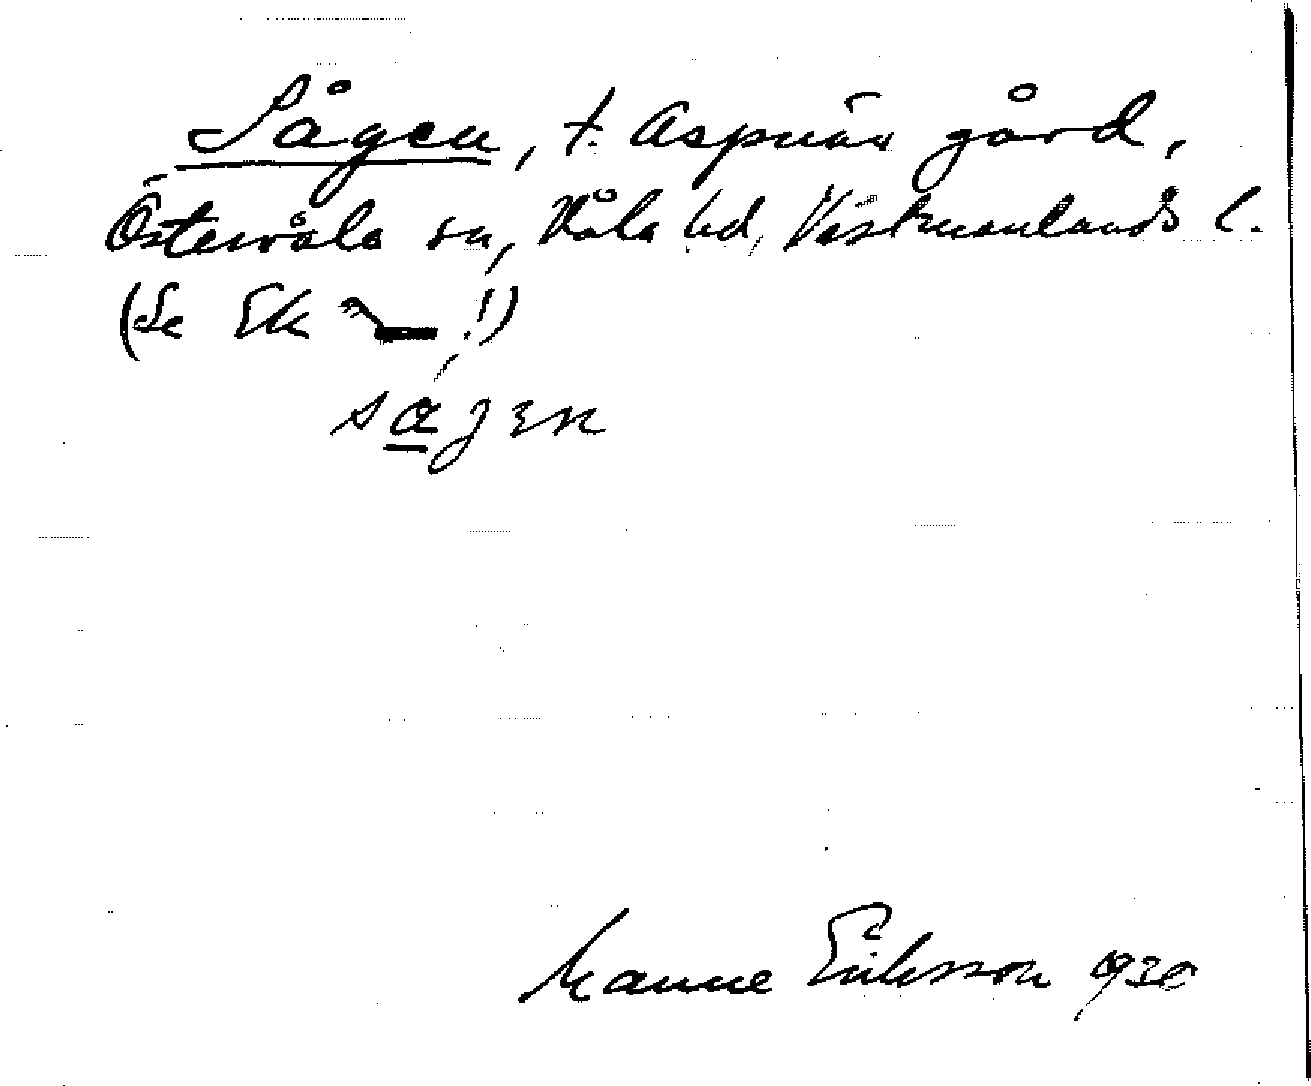 Sågen, t. Aspnäs gård,
Östervåla sn, Våla hd, Västmanlands l.
(Se Ek !)
Manne Eriksson 1930